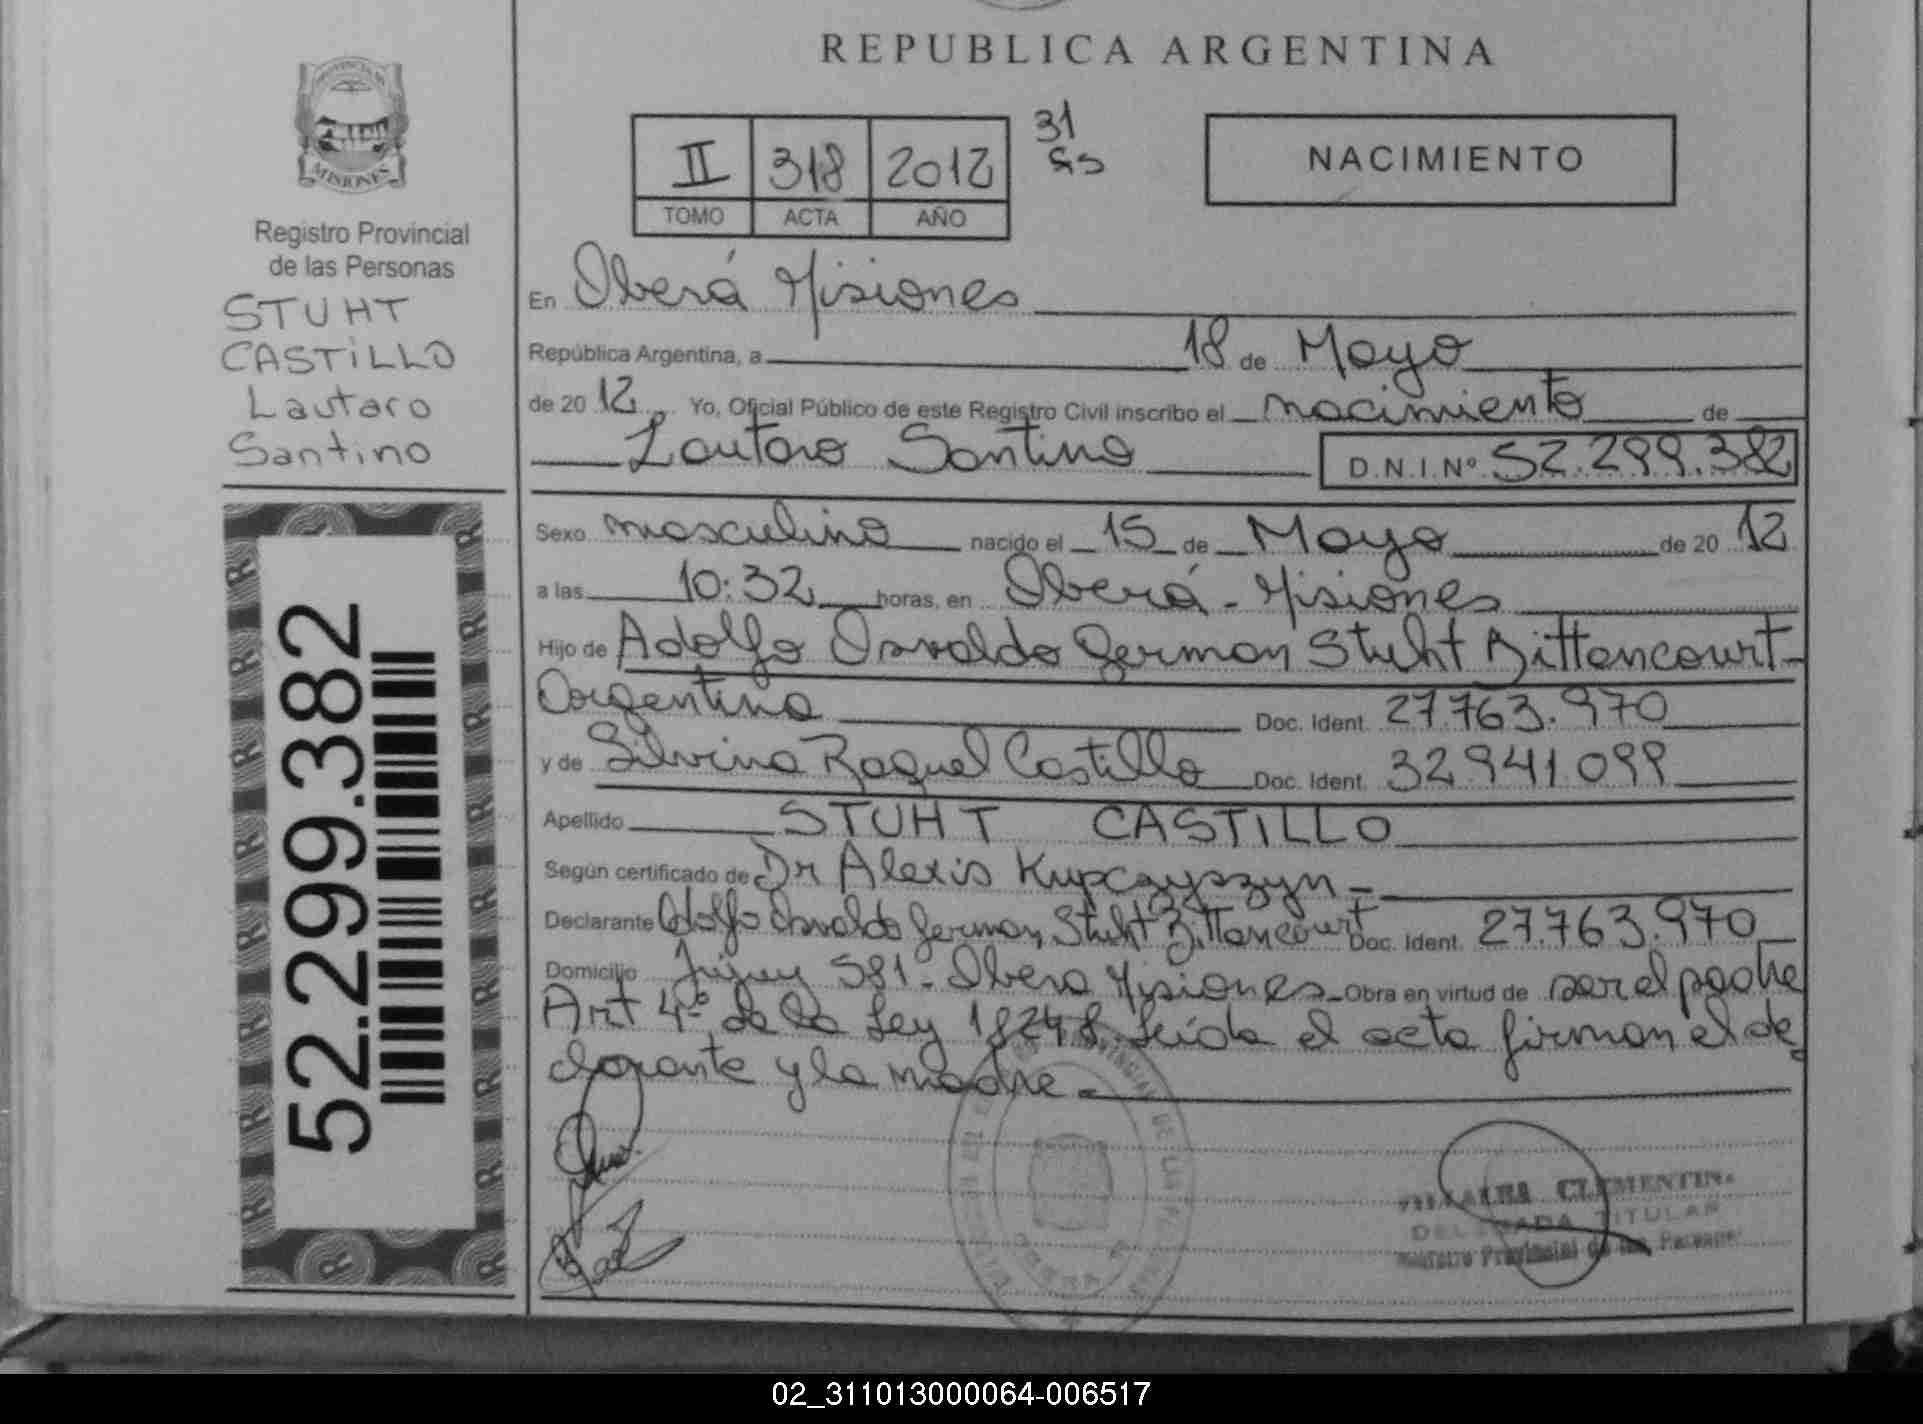 REPUBLICA ARGENTINA
PROVINCIA DE
MISIONES
Registro Provincial
de las Personas
STUHT
CASTiLLO
Lautaro
Santino
52.299.382
II 318 2012
TOMO ACTA AÑO
31
NACIMIENTO
En Oberá Misiones
República Argentina, a 18 de Mayo
de 20 12 Yo, Oficial Público de este Registro Civil inscribo el nacimiento de
Lautaro Santino D.N.I.Nº 52.299.382
Sexo masculino nacido el 15 de Mayo de 20 12
a las 10:32 horas, en Oberá - Misiones
Hijo de Adolfo Osvaldo German Stuht Bittencourt-
Argentino Doc. Ident. 27.763.970
y de Silvina Raquel Castillo Doc. Ident. 32.941.099
Apellido STUHT CASTILLO
Según certificado de Dr Alexis Kupczyszyn -
Declarante Adolfo Osvaldo German Stuht Bittencourt Doc. Ident. 27.763.970
Domicilio Jujuy 581 - Obera Misiones - Obra en virtud de ser el padre
Art 4º de la Ley 18248. Leida el acta firman el de
clarante y la madre -
CLEMENTINA
DELEGADA TITULAR
Registro Provincial de las Personas
02_311013000064-006517